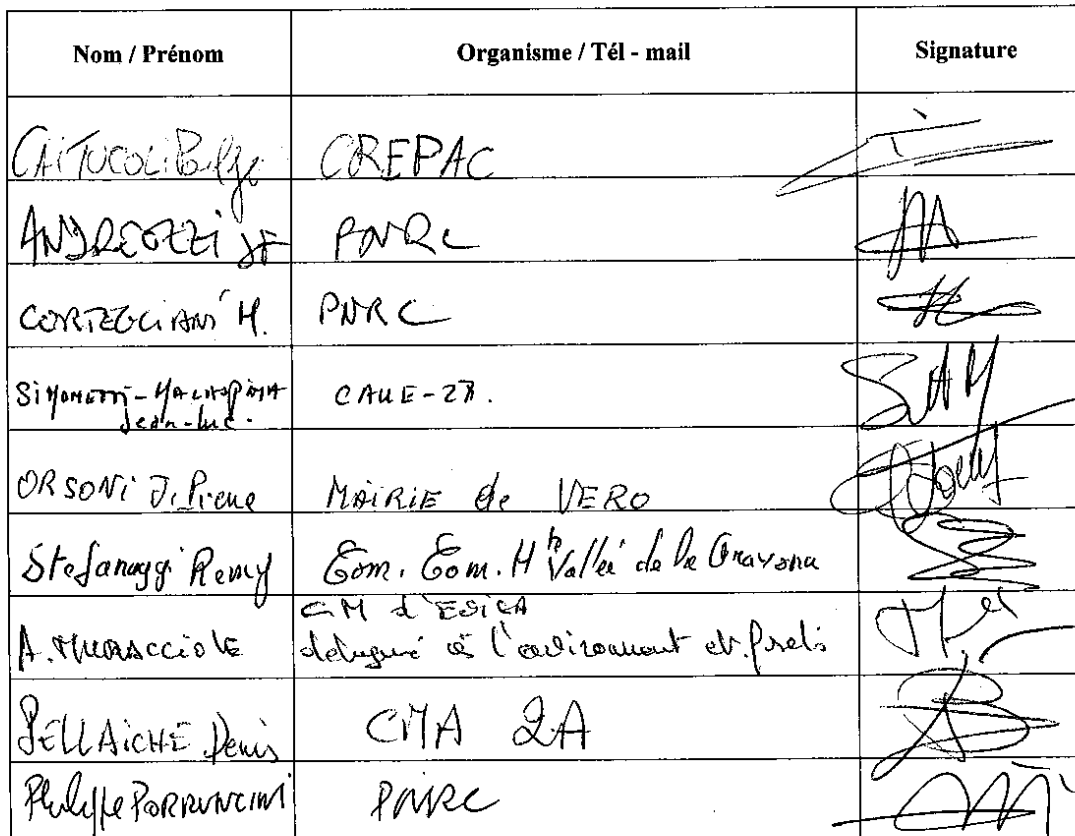 Nom / Prénom Organisme / Tél - mail Signature
CAITUCOLI CREPAC
ANDREOZZI JF PNRC
CORTEGGIANI M. PNRC
SIMONETTI-MALASPINA CAUE-2A.
Jean-Luc.
ORSONI J. Pierre MAIRIE de VERO
Stefanaggi Remy Com. Com. Hte Vallée de la Gravona
CM d'
A. MURACCIOLE délégué à l'environnement et forêts
BELLAICHE Denis CMA 2A
Philippe PORRUNCINI PNRC